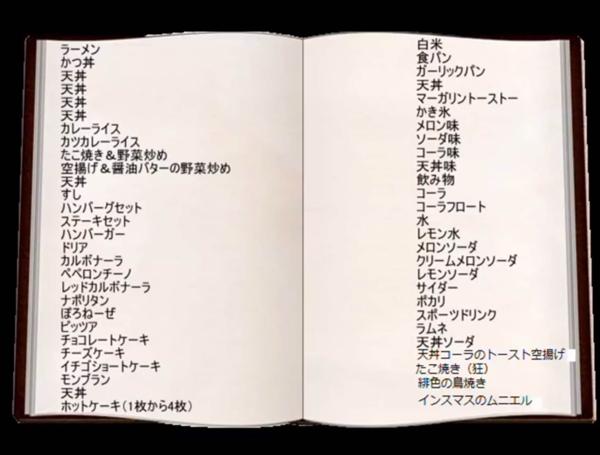 ラーメン
かつ丼
天丼
天丼
天丼
天丼
カレーライス
カツカレーライス
たこ焼き＆野菜炒め
空揚げ＆醤油バターの野菜炒め
天丼
すし
ハンバーグセット
ステーキセット
ハンバーガー
ドリア
カルボナーラ
ペペロンチーノ
レッドカルボナーラ
ナポリタン
ぼろねーぜ
ピッツア
チョコレートケーキ
チーズケーキ
イチゴショートケーキ
モンブラン
天丼
ホットケーキ（1枚から4枚）
白米
食パン
ガーリックパン
天丼
マーガリントーストー
かき氷
メロン味
ソーダ味
コーラ味
天丼味
飲み物
コーラ
コーラフロート
水
レモン水
メロンソーダ
クリームメロンソーダ
レモンソーダ
サイダー
ポカリ
スポーツドリンク
ラムネ
天丼ソーダ
天丼コーラのトースト空揚げ
たこ焼き（狂）
緋色の鳥焼き
インスマスのムニエル